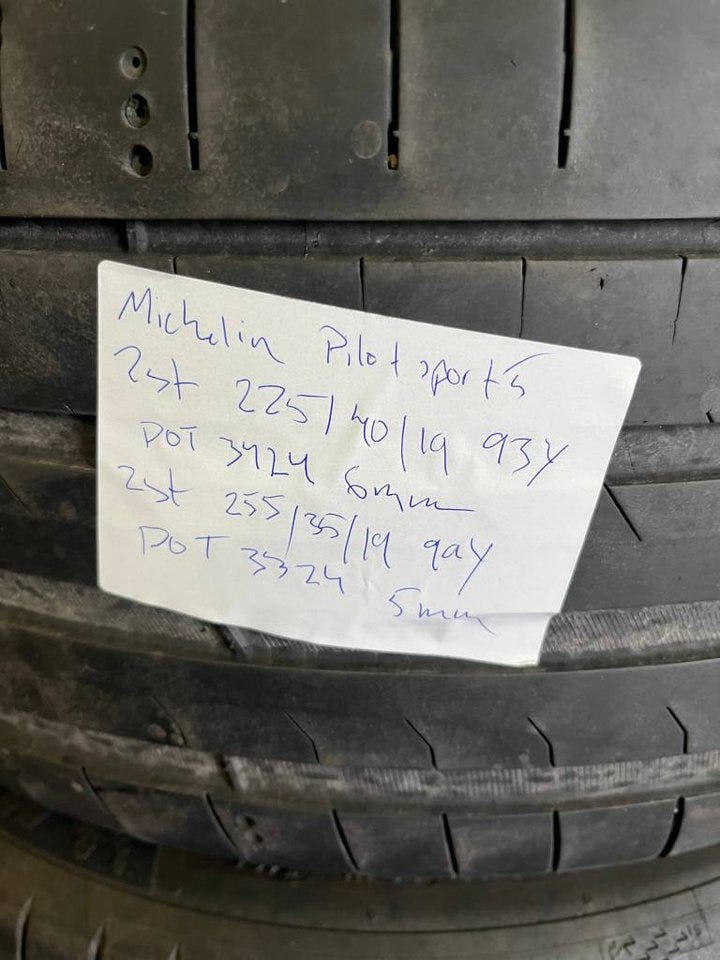 Michelin Pilot sport 5
2st 225/40/19 93Y
DOT 3424 6mm
2st 255/35/19 96Y
DOT 3324 5mm